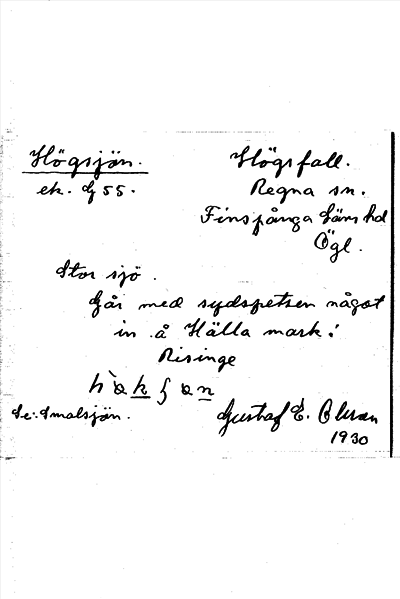 Högsjön.
Högsfall.
ek. G 55.
Regna sn.
Finspånga läns hd
Ögl.
Stor sjö.
Går med sydspetsen något
in å Hälla mark i
Risinge
Se: Smalsjön.
Gustaf E.
1930